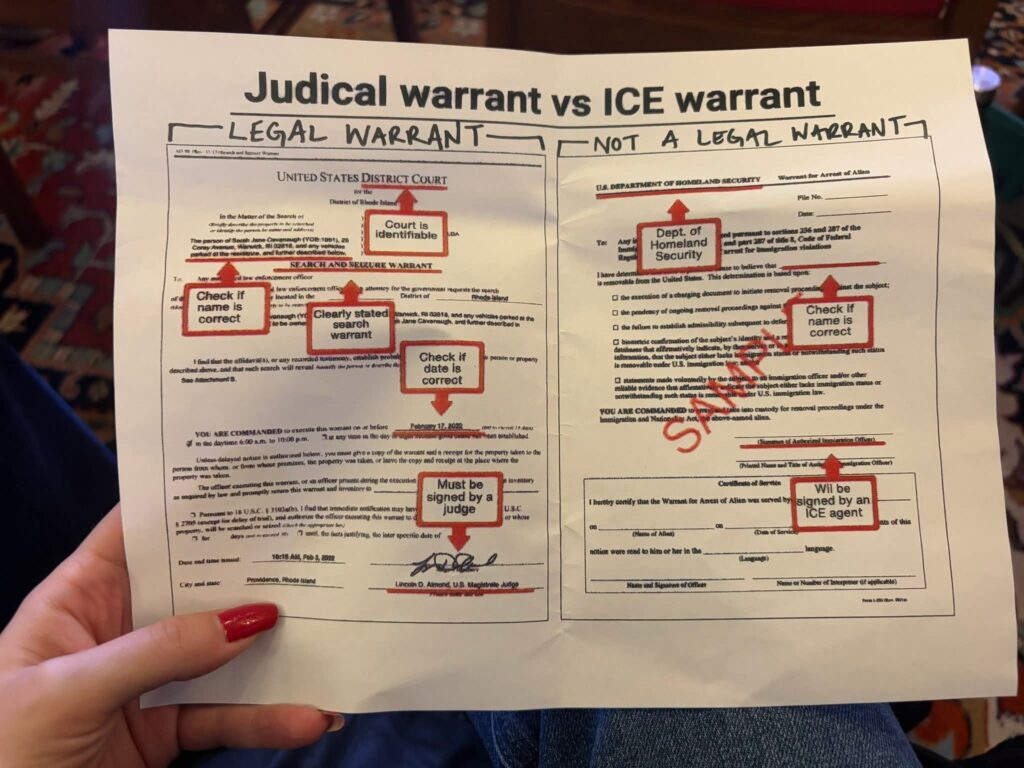 Judical warrant vs ICE warrant
LEGAL WARRANT
NOT A LEGAL WARRANT
Search and Seizure Warrant
UNITED STATES DISTRICT COURT
for the
District of Rhode Island
Court is
identifiable
In the Matter of the Search of
(Briefly describe the property to be searched
or identify the person by name and address)
The person of Sarah Jane Cavanaugh (YOB:1991), 26
Coney Avenue, Warwick, RI 02818, and any vehicles
parked at the residence, and further described below.
SEARCH AND SEIZURE WARRANT
To: Any authorized law enforcement officer
attorney for the government requests the search
located in the District of Rhode Island
Check if
name is
correct
Clearly stated
search
warrant
Check if
date is
correct
I find that the affidavit(s), or any recorded testimony, establish
person or property
described above, and that such search will reveal
See Attachment B.
YOU ARE COMMANDED to execute this warrant on or before February 17, 2022 (not to exceed 14 days)
in the daytime 6:00 a.m. to 10:00 p.m. at any time in the day or night because good cause has been established.
Unless delayed notice is authorized below, you must give a copy of the warrant and a receipt for the property taken to the
person from whom, or from whose premises, the property was taken, or leave the copy and receipt at the place where the
property was taken.
The officer executing this warrant, or an officer present during the execution
inventory
as required by law and promptly return this warrant and inventory to
Must be
signed by a
judge
Pursuant to 18 U.S.C. § 3103a(b), I find that immediate notification may
U.S.C.
§ 2705 (except for delay of trial), and authorize the officer executing this warrant to
or whose
property, will be searched or seized (check the appropriate box)
for days until, the facts justifying, the later specific date of
Date and time issued: 10:15 AM, Feb 3, 2022
City and state: Providence, Rhode Island
Lincoln D. Almond, U.S. Magistrate Judge
Printed name and title
U.S. DEPARTMENT OF HOMELAND SECURITY Warrant for Arrest of Alien
File No.
Date:
Dept. of
Homeland
Security
To: Any
pursuant to sections 236 and 287 of the
and part 287 of title 8, Code of Federal
arrest for immigration violations
I have determined
to believe that
is removable from the United States. This determination is based upon:
the execution of a charging document to initiate removal proceedings against the subject;
the pendency of ongoing removal proceedings against
the failure to establish admissibility subsequent to
Check if
name is
correct
biometric confirmation of the subject's identity and
databases that affirmatively indicate, by themselves or
information, that the subject either lacks immigration status or notwithstanding such status
is removable under U.S. immigration law;
statements made voluntarily by the subject to an immigration officer and/or other
reliable evidence that affirmatively indicate the subject either lacks immigration status or
notwithstanding such status is removable under U.S. immigration law.
SAMPLE
YOU ARE COMMANDED to arrest and take into custody for removal proceedings under the
Immigration and Nationality Act, the above-named alien.
(Signature of Authorized Immigration Officer)
(Printed Name and Title of Authorized Immigration Officer)
Certificate of Service
I hereby certify that the Warrant for Arrest of Alien was served by
Will be
signed by an
ICE agent
on on
(Name of Alien) (Date of Service)
of this
notice were read to him or her in the language.
(Language)
Name and Signature of Officer Name or Number of Interpreter (if applicable)